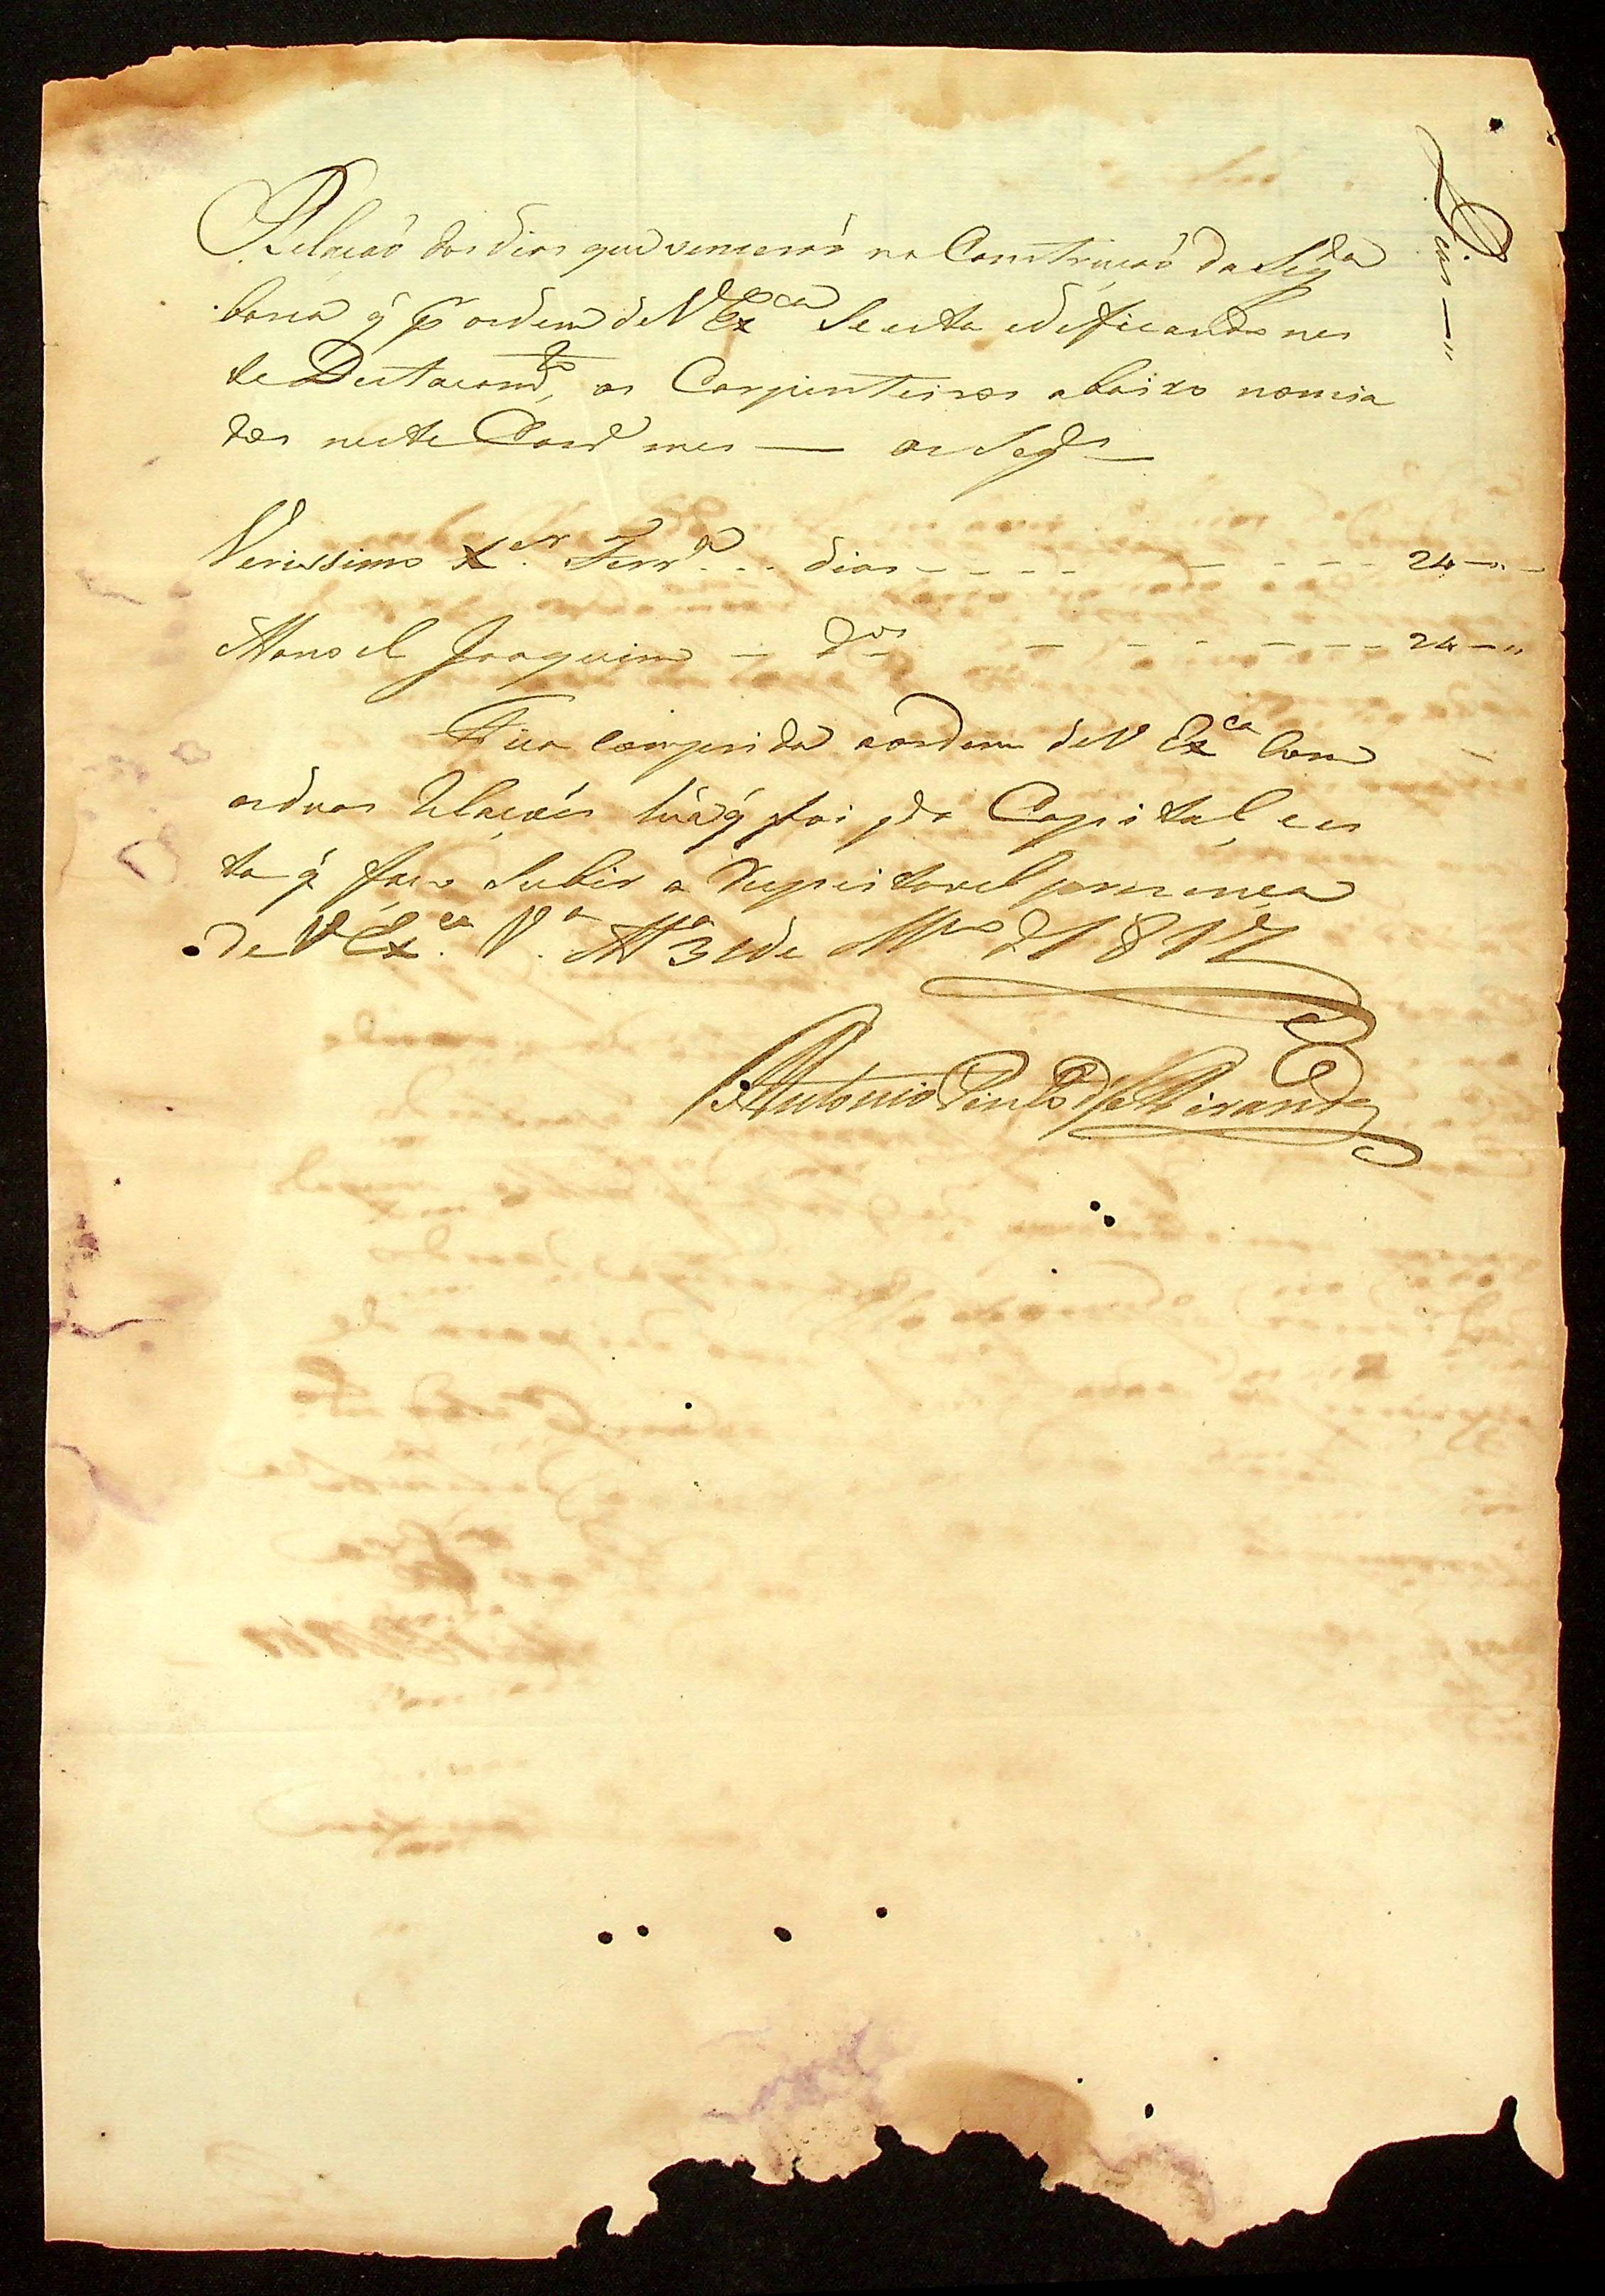 Relaçaõ dos dias que venceraõ na Comstruçaõ da Segda
barca q̃ p ordem de V Exca Se esta edeficando nes
te Destacamto, os Carpenteiros abaixo nomia
dos neste Cord mes — os Segs —
Dias — "
Verissimo Xer Ferra . . . dias - - - - - - - - - 24 — " —
Manoel Joaquim — Dos - - - - - - - - 24 — "
Fica comprida a ordem de V Exca Com
as duas Relaçoẽs huã q̃ foi pda Capital, e es
ta q̃ faço Subir a Respeitavel prezença
de V Exca. Va. Ma 31 de Mco d 1817
Antonio Pinto de Miranda